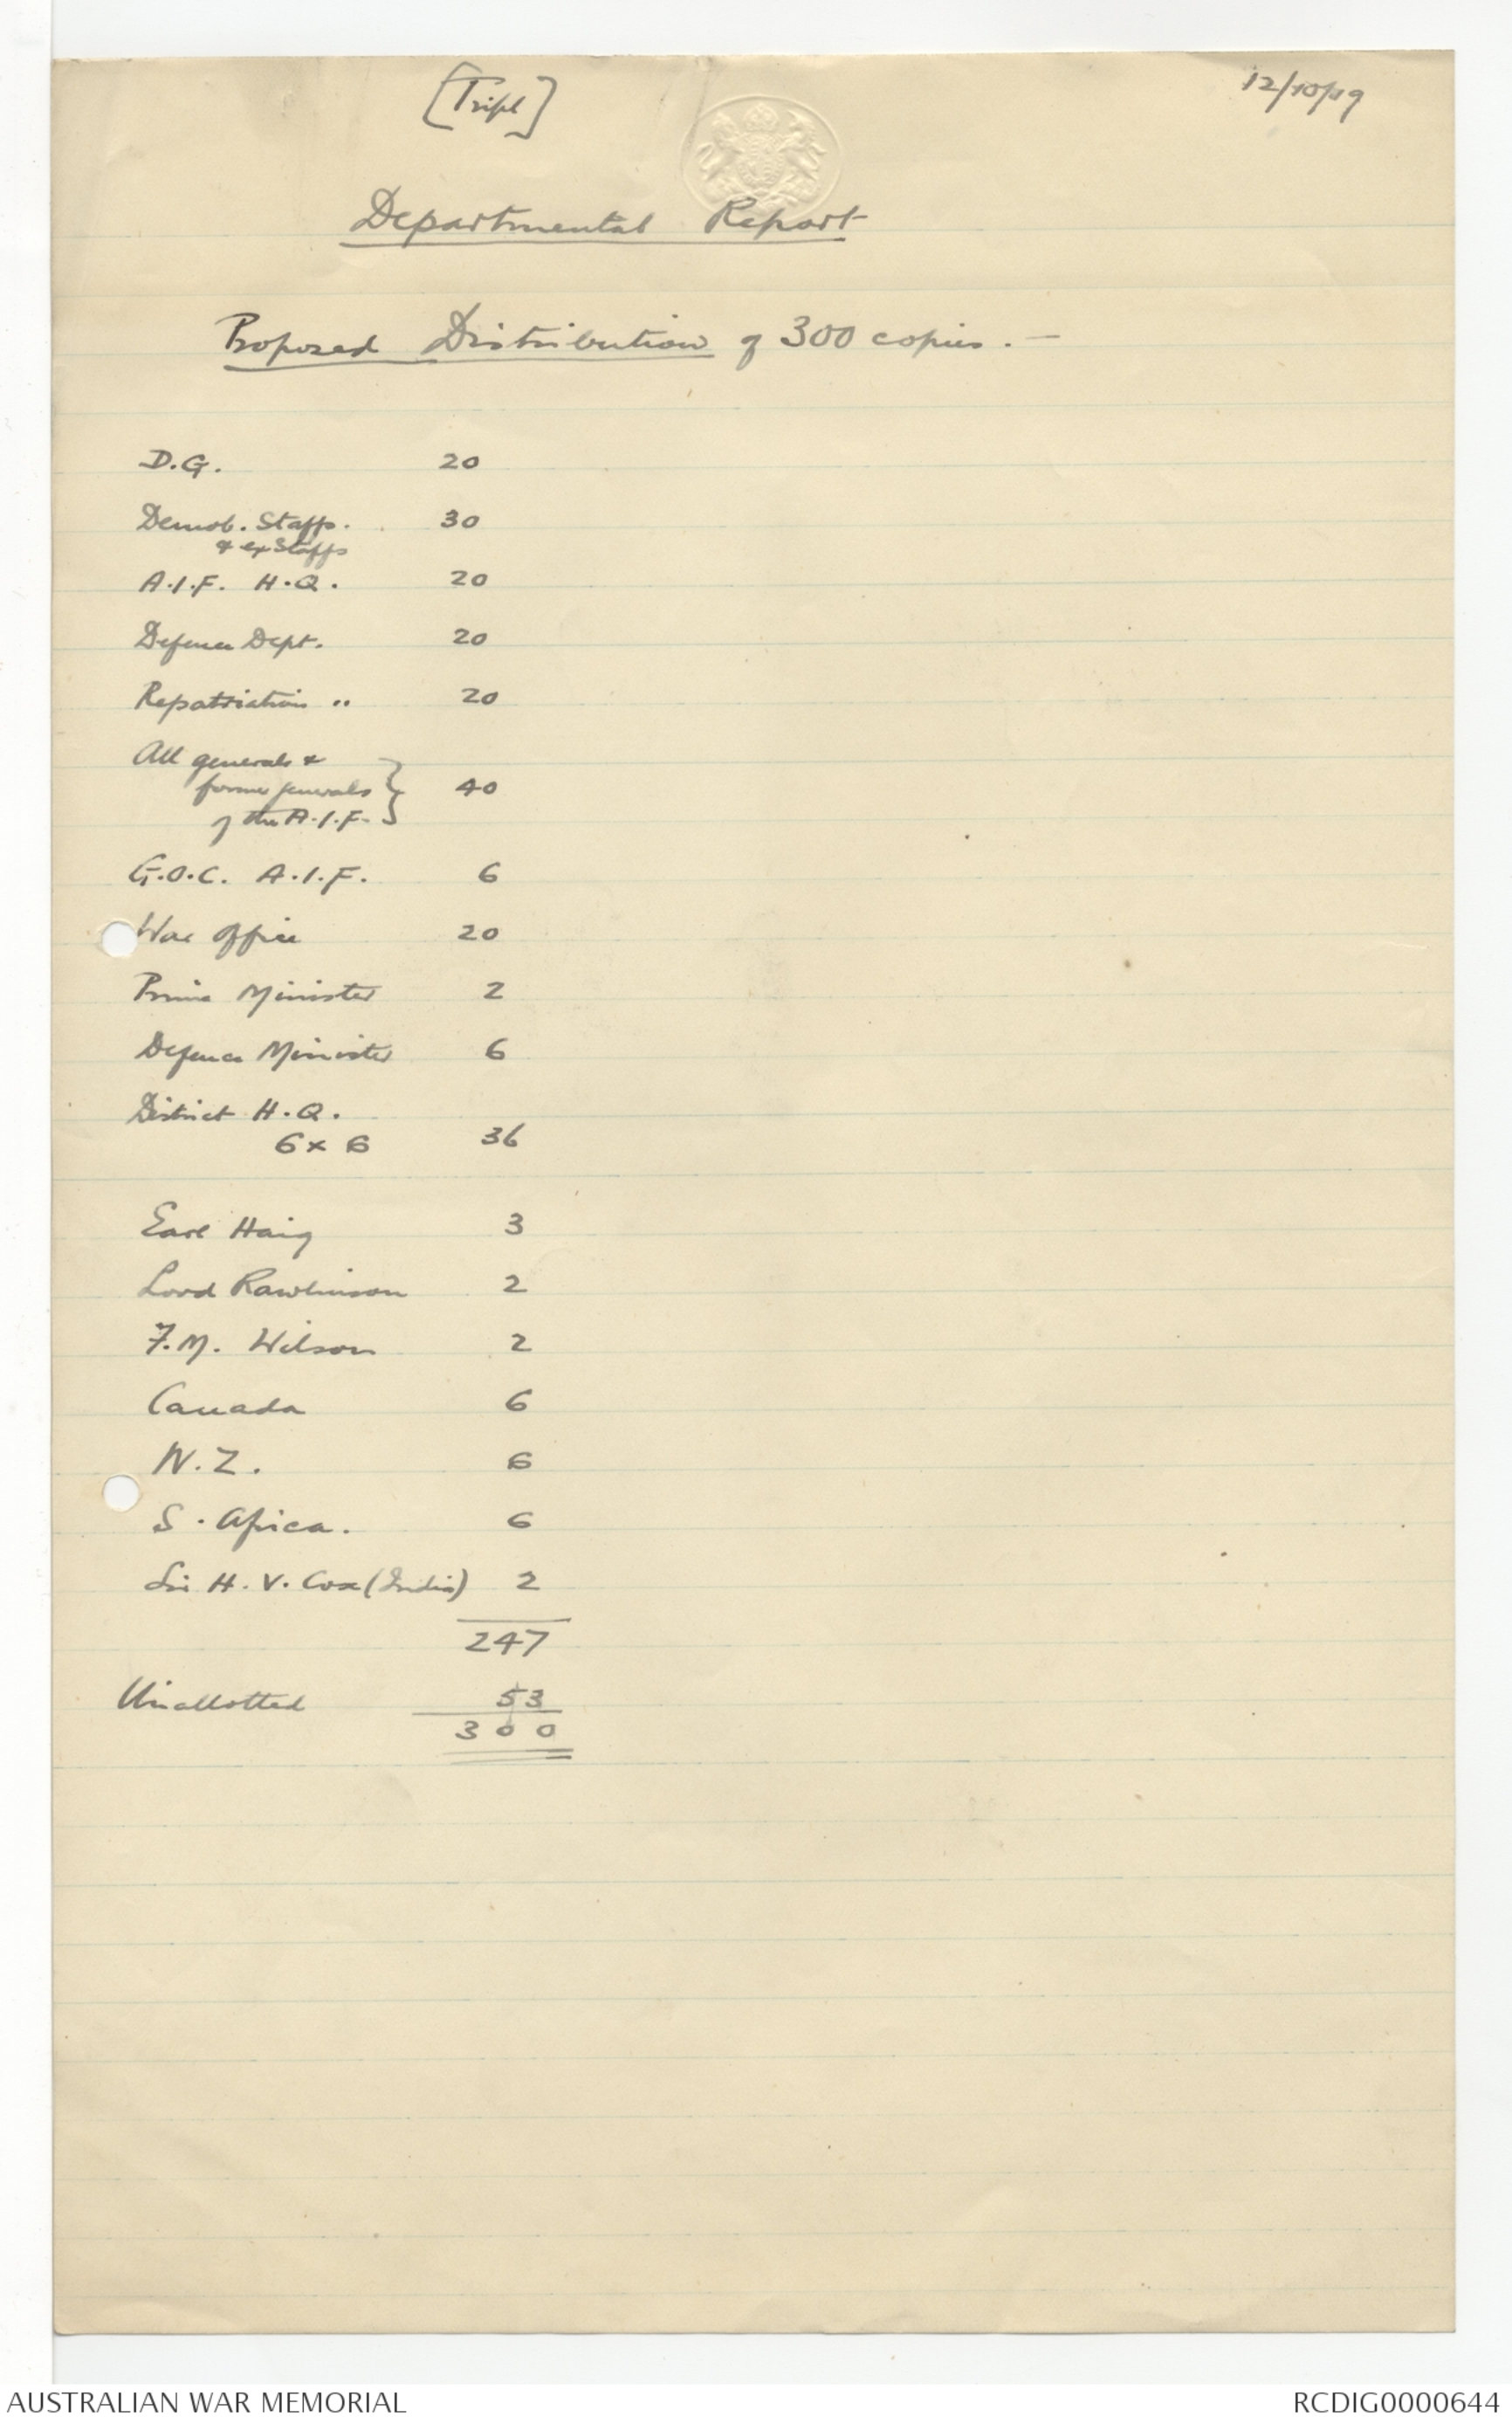 [Tripl]
12/10/19
Departmental Report
Proposed Distribution of 300 copies. —
D.G. 20
Demob. Staffs. 30
& ex Staffs
A.I.F. H.Q. 20
Defence Dept. 20
Repatriation " 20
All generals &
former generals } 40
of the A.I.F.
G.O.C. A.I.F. 6
War Office 20
Prime Minister 2
Defence Minister 6
District H.Q.
6 x 6 36
Earl Haig 3
Lord Rawlinson 2
F.M. Wilson 2
Canada 6
N.Z. 6
S. Africa. 6
Sir H. V. Cox (India) 2
247
Unallotted 53
300
AUSTRALIAN WAR MEMORIAL
RCDIG0000644